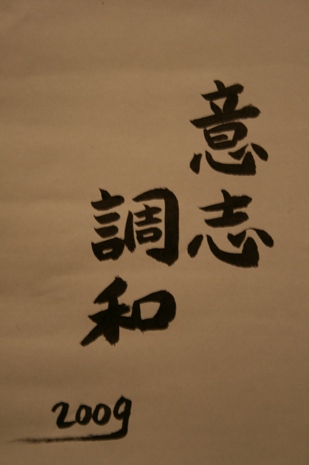 意志
調和
2009